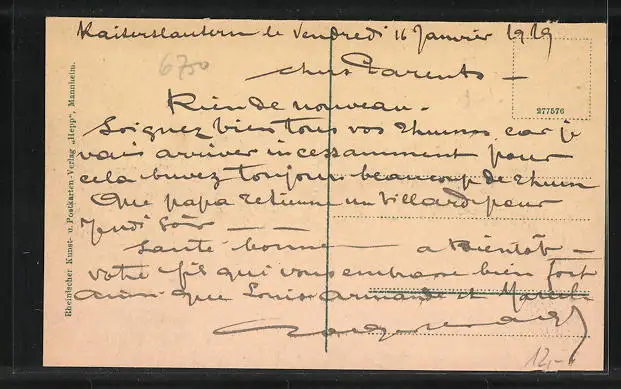 Kaiserslautern le Vendredi 16 Janvier 1919
6750
chers Parents —
Rien de nouveau.
Soignez bien tous vos rhumes car je
vais arriver incessamment pour
cela buvez toujours beaucoup de rhum
Que papa retienne un billard pour
Jeudi soir —
Santé bonne — a Bientôt —
votre fils qui vous embrasse bien fort
ainsi que Louise Armande et Marcel
277576
Rheinischer Kunst- u. Postkarten-Verlag „Hepp", Mannheim.
12,-